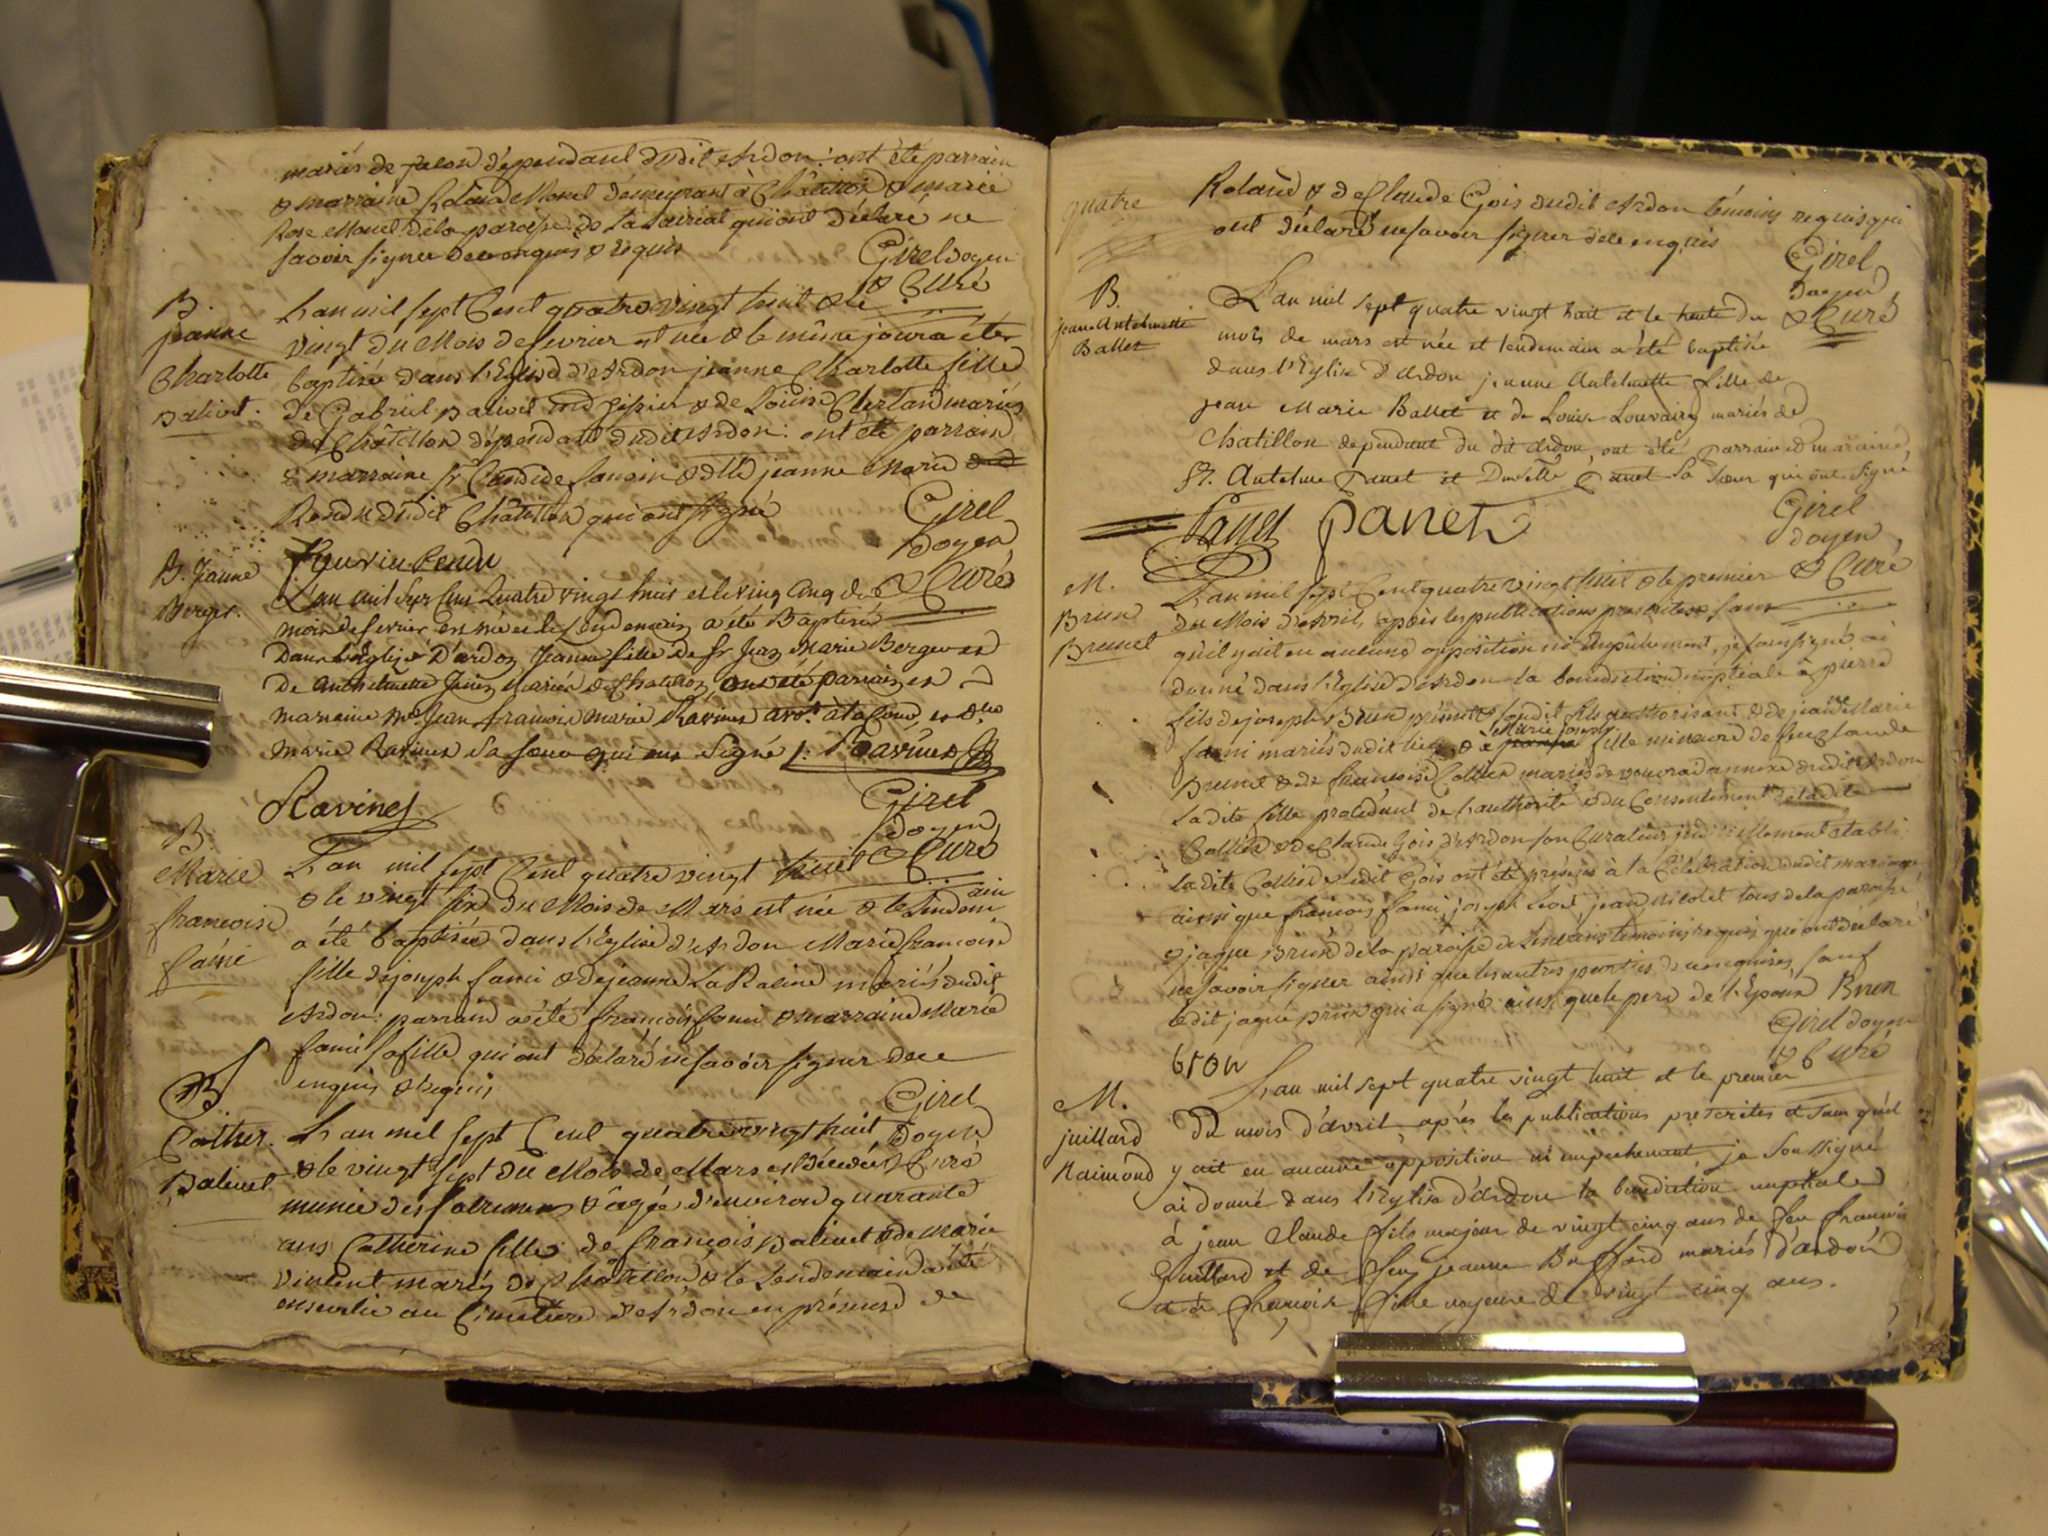 mariés de dépendant dudit Ardon : ont été parrain
& marraine Monet demeurant à Châtillon & marie
Rose Monet de la paroisse de qui ont déclaré ne
savoir signer de ce enquis & requis
Girel doyen
& Curé
B.
jeanne
Charlotte
Balivet.
L'an mil sept Cent quatre vingt huit & le
vingt du Mois de fevrier est née & le même jour a été
baptisée dans l'Eglise d'Ardon jeanne Charlotte fille
de Gabriel Balivet & de Louise mariés
de Châtillon dépendant dudit Ardon : ont été parrain
& marraine sr Candide & dlle jeanne Marie
dudit Châtillon qui ont signé
Girel
doyen
& Curé
B. Janne
Berger.
L'an mil sept Cens quatre vings huit et le ving cinq du
mois de fevrier en née et le lendemain a été Baptisée
Dans l'églize D'ardon Jeanne fille de sr Jean Marie Berger et
De Anthelmette Mariés de Chatillon, ont été parrain et
maraine Me Jean françois marie Ravinet avot à la Cour, et dlle
marie Ravinet sa soeur qui ont signé /. Ravinet
Ravinet
Girel
doyen
& Curé
B.
Marie
francoise
famé
L'an mil sept Cent quatre vingt huit
& le vingt six du Mois de Mars est née & le lendemain
a été baptisée dans l'Eglise d'Ardon Marie francoise
fille de joseph & de jeanne La Racine mariés dudit
Ardon : parrain a été françois & marraine Marie
sa fille, qui ont déclaré ne savoir signer de ce
enquis & requis
Girel
doyen
& Curé
Cather.
Balivet
L'an mil sept Cent quatre vingt huit
& le vingt sept du Mois de Mars est décédée
munie des Sacremens & âgée d'environ quarante
ans Catherine fille de françois Balivet & de Marie
vincent mariés de Châtillon & le Lendemain a été
ensevelie au Cimetiere d'Ardon en présence de
quatre
Roland & de Claude Gois dudit Ardon témoins requis qui
ont déclaré ne savoir signer de ce enquis
Girel
doyen
& Curé
B.
jeane Antelmette
Ballet
L'an mil sept quatre vingt huit et le trente du
mois de mars est née et lendemain a été baptisée
dans l'Eglise d'Ardon jeanne Antelmette fille de
jean Marie Ballet et de Louise Louvain mariés de
Chatillon dependant du dit Ardon, ont été parrain et maraine
Sr. Antelme Panet et Dmselle Panet sa soeur qui ont signé
Panet panet
Girel
doyen
& Curé
M.
Brun
Brunet
L'an mil sept Cent quatre vingt huit & le premier
du Mois d'Avril, après les publications prescrites & sans
qu'il y ait eu aucune opposition ni empêchement, je soussigné ai
donné dans l'Eglise d'Ardon la benediction nuptiale à pierre
fils de joseph Brun sondit fils authorisant & de jeanne Marie
mariés dudit lieu & à Marie Josephe fille mineure de feu Claude
Brunet & de françoise Collier mariés de vouvra annexe dudit Ardon
Ladite fille procedant de l'authorité & du Consentement de ladite
Collier & de Claude Gois d'Ardon son Curateur judiciellement établi
Ladite Collier & ledit Gois ont été présens à la Célébration dudit mariage
ainsi que françois joseph jean tous de la paroisse
& jaque Brun de la paroisse de témoins requis qui ont déclaré
ne savoir signer ainsi que les autres parties de ce enquises, sauf
ledit jaque Brun qui a signé ainsi que le pere de l'Epoux Brun
Girel doyen
& Curé
M.
juillard
Raimond
L'an mil sept quatre vingt huit et le premier
Du mois d'avril, après les publications prescrites et sans qu'il
y ait eu aucune opposition ni empechement je soussigné
ai donné dans l'Eglise d'Ardon la benediction nuptiale
à jean Claude fils majeur de vingt cinq ans de feu francois
Juillard et de feu jeanne Buffard mariés d'ardon
et à francoise fille majeure de vingt cinq ans.